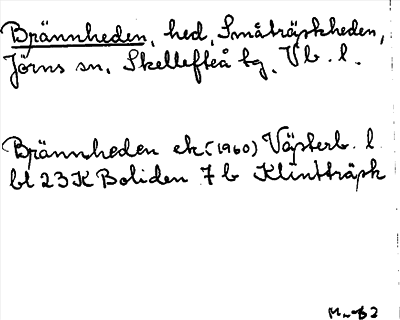 Brännheden, hed, Småträskheden,
Jörns sn, Skellefteå tg, Vb. l.
Brännheden ek (1960) Västerb. l
bl 23K Boliden 7 b Klintträsk